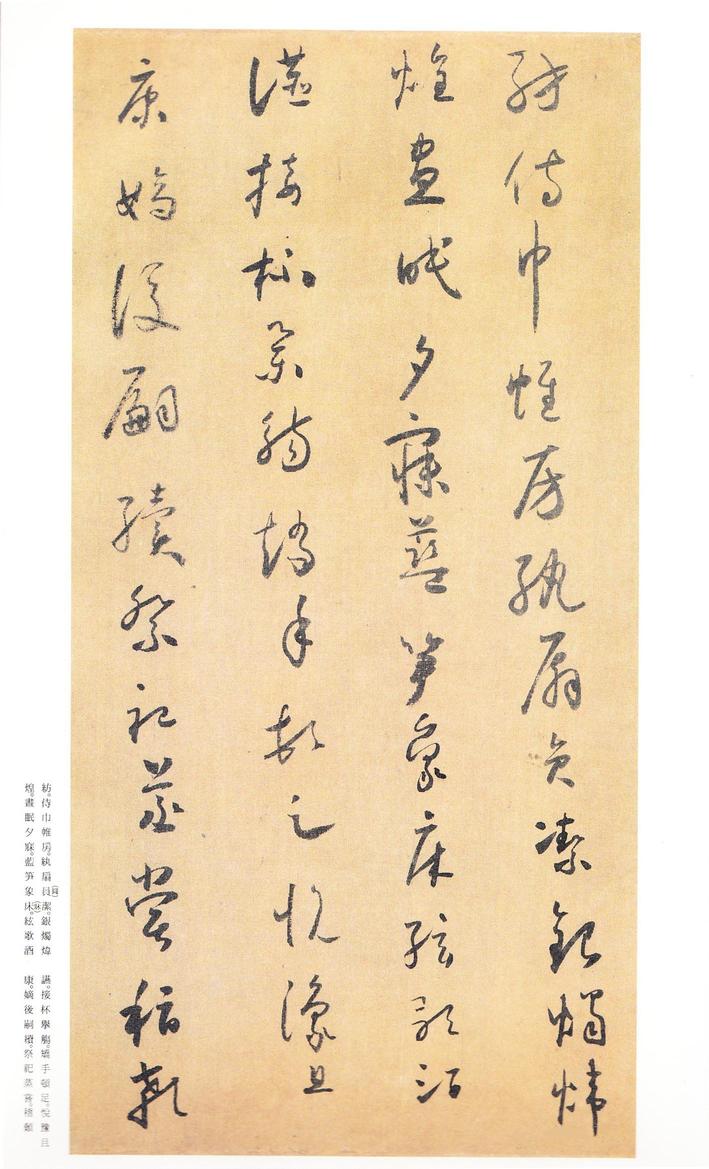 紡侍巾帷房紈扇員潔銀燭煒
煌晝眠夕寐藍笋象床絃歌酒
讌接杯舉觴矯手頓足悅豫且
康嫡後嗣續祭祀蒸嘗稽顙
紡。侍巾帷房。紈扇員潔。銀燭煒
煌。晝眠夕寐。藍笋象床。絃歌酒
讌。接杯擧觴。矯手頓足。悅豫且
康。嫡後嗣續。祭祀蒸嘗。稽顙